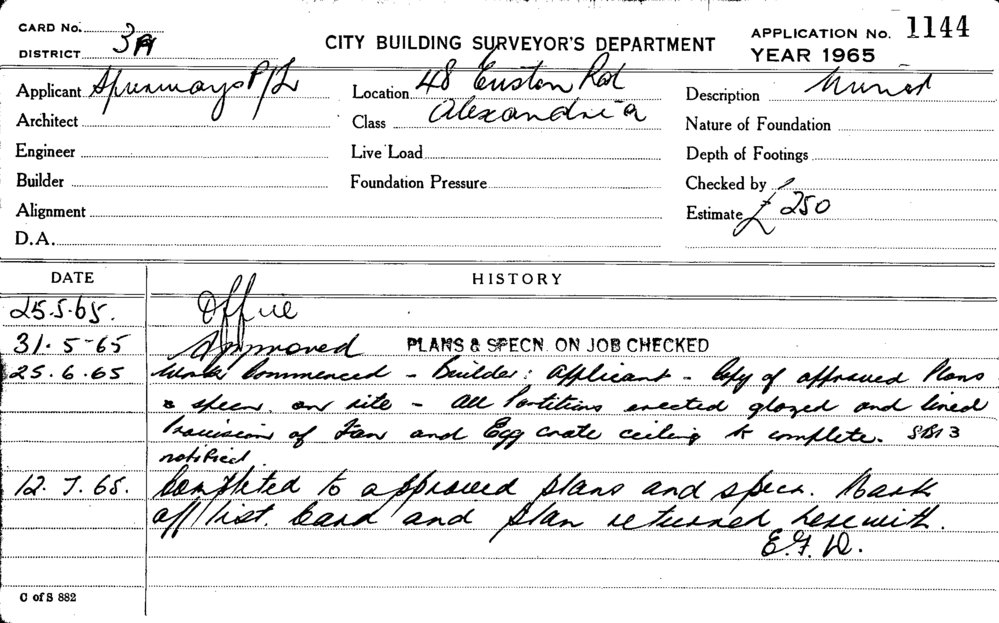 CARD No.
DISTRICT 3A
CITY BUILDING SURVEYOR'S DEPARTMENT
APPLICATION No. 1144
YEAR 1965
Applicant Spurways P/L
Location 48 Euston Rd
Alexandria
Description Minor
Architect
Class
Nature of Foundation
Engineer
Live Load
Depth of Footings
Builder
Foundation Pressure
Checked by
Alignment
Estimate £250
D.A.
DATE HISTORY
25.5.65. Office
31.5-65 Approved PLANS & SPECN. ON JOB CHECKED
25.6.65 Work Commenced - Builder: Applicant - Copy of approved Plans
& specn. on site - All Partitions erected glazed and lined
Provision of Fan and Egg crate ceiling to complete.
notified.
12.7.65. Completed to approved plans and specn. Mark
off list. Card and plan returned herewith.
E.G.D.
C of S 882